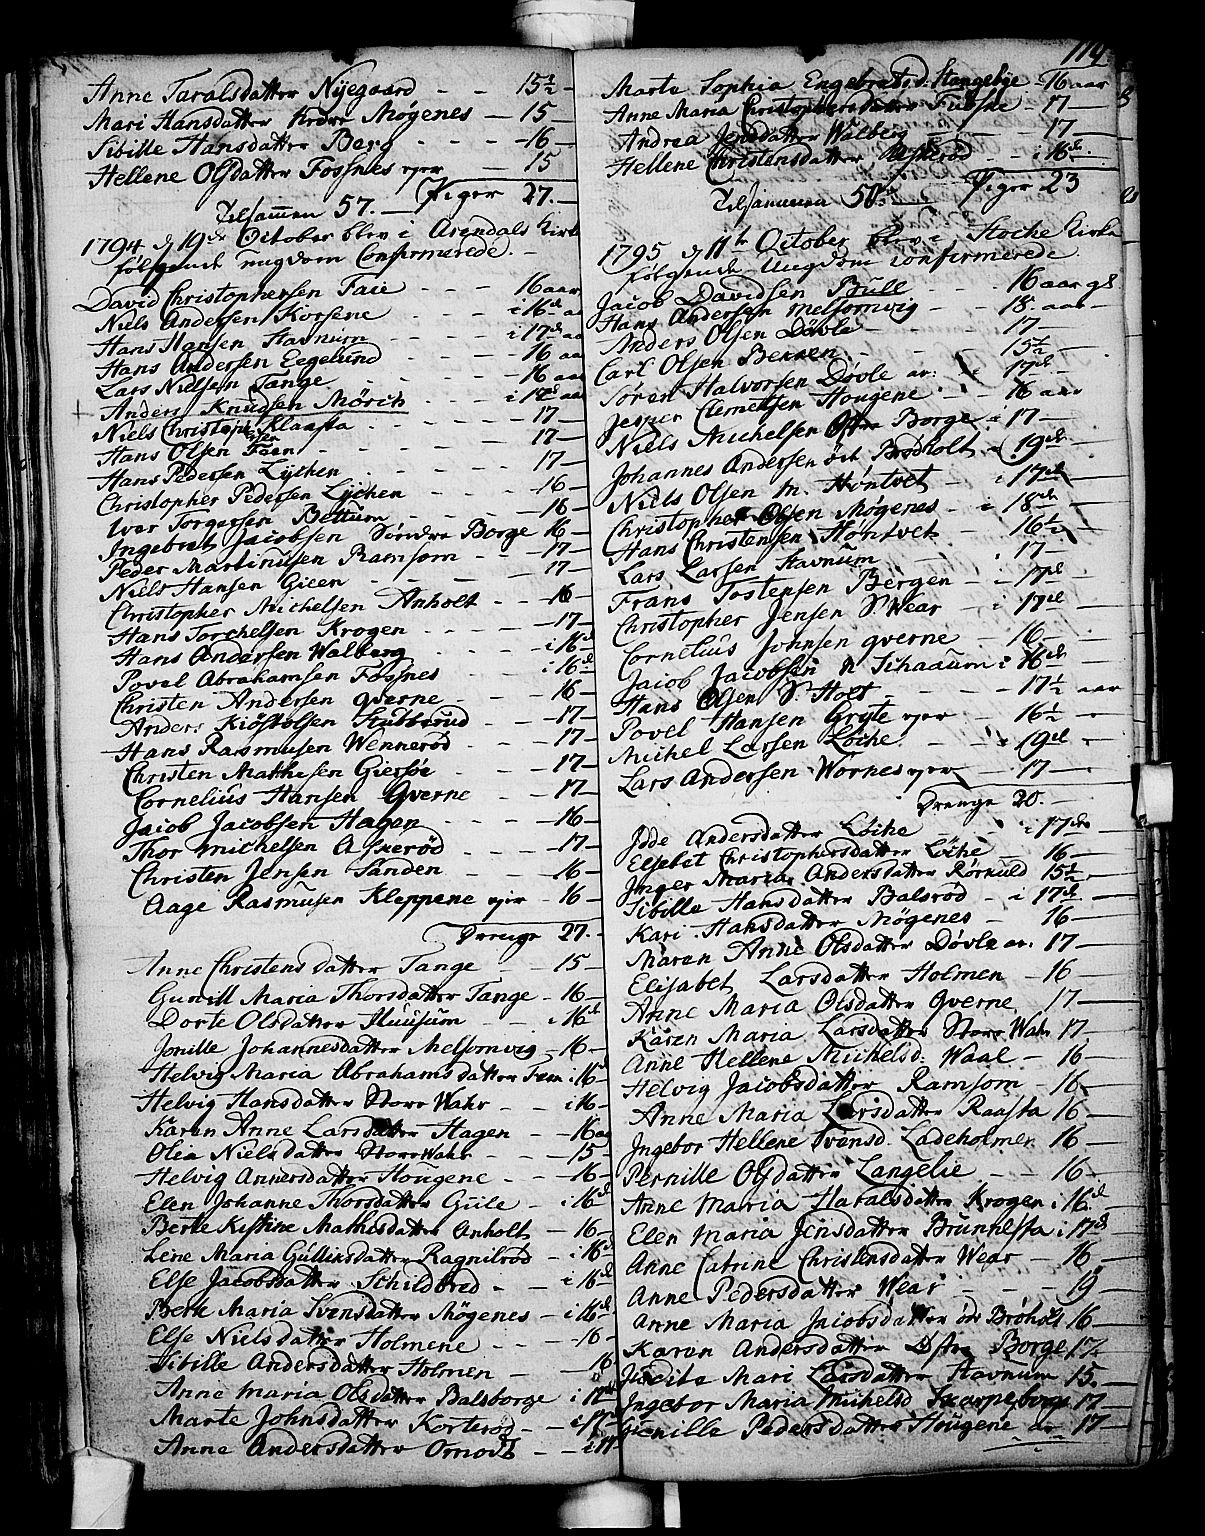 Anne Taralsdatter Nyegaard - - 15½ -
Mari Hansdatter Nedre Møgenes - 15 -
Sibille Hansdatter Berg - - - - 16 -
Hellene Olsdatter Fossnes - 15
Piger 27. -
Tilsammen 57. -
1794 d 19de October blev i Arendals Kirke
følgende ungdom Confirmerede. -
David Christophersen Faie - - - 16 aar
Niels Andersen Korsene - - - i 16de aa
Hans Hansen Stavnum - - - i 17de aa
Hans Andersen Eegelund - - - 16 aa
Lars Nielsen Tange - - - - 16 aa
Anders Knudsen Mörch - - - i 17de aa
Niels Christophersen Klaasta - - - 17 -
Hans Olsen Faen - - - - 17 -
Hans Pedersen Lychen - - - 17 -
Christopher Pedersen Lychen - - - 16 -
Iver Torgersen Bettum - - - 16 -
Ingebret Jacobsen Söndre Borge 16 -
Peder Martinusen Ramsom - - 17 -
Niels Hansen Gieen - - - - 17 -
Christopher Michelsen Anholt - - 16 -
Hans Torchelsen Krogen - - - 17 -
Hans Andersen Walberg - - - i 16de
Povel Abrahamsen Fossnes - - i 16de
Christen Andersen Qverne - - - 16 -
Anders Kiöstolsen Skibberud - - 17 -
Hans Rasmusen Wennerød - - - 17 -
Christen Mathisen Giersöe - - - 17 -
Cornelius Hansen Qverne - - - 17 -
Jacob Jacobsen Hagen - - - 16 -
Thor Michelsen Askerød - - - 17 -
Christen Jensen Sanden - - - 16 -
Aage Rasmusen Kleppene - 16 -
Drenge 27. -
Anne Christensdatter Tange - - 15 -
Gunill Maria Thorsdatter Tange - 16 -
Dorte Olsdatter Huusum - - i 16de
Jonille Johannesdatter Melsomvig - 16 -
Helvig Maria Abrahamsdatter Faen i 16de
Helvig Hansdatter Store Wahr - - i 16 -
Karen Anne Larsdatter Hagen - - 16 aa
Olea Nielsdatter Store Wahr - - 15 -
Helvig Annersdatter Hougene - - 16 -
Elen Johanne Thorsdatter Guile - i 16de
Berte Kistine Mathisdatter Anholt - 16 -
Lene Maria Gulliksdatter Ragnilrød - i 16de
Else Jacobsdatter Schildbred - - i 16de
Berte Maria Svensdatter Møgenes - i 16de
Else Nielsdatter Holmene - - 16 -
Sibille Andersdatter Holmen - - 16
Anne Maria Olsdatter Balsborge i 17de
Marte Johnsdatter Korterød - - i 17de
Anne Andersdatter Omodt - - i 17
114.
Marte Sophia Engebretsd. Stangebye 16 aar
Anne Maria Christophersdatter Fueske 17 -
Andrea Jensdatter Walberg - - 17 -
Hellene Christensdatter Askerød - i 16de
Piger 23
Tilsammen 50. -
1795 d 11te October blev i Stocke Kirke
følgende Ungdom confirmerede.
Jacob Davidsen Bulle - - - 16 aar gl
Hans Andersen Melsomvig - - 18 aar -
Anders Olsen Dövle - - - 17 -
Carl Olsen Bekken - - - 15½ -
Sören Halvorsen Dövle - i 17de -
Jesper Clemetsen Hougene - - 16 aar
Niels Michelsen Østre Borge - i 17 -
Johannes Andersen öde Brödholt - (19de
Niels Olsen M. Höntvet - i 17de
Christopher Olsen Møgenes - i 18de
Hans Christensen Höntvet - 16½
Lars Larsen Stavnum - - i 17 -
Frans Tostensen Bergen - i 17de
Christopher Jensen S. Wear - i 17de
Cornelius Johnsen Qverne - 16 -
Jacob Jacobsen N Schaaum i 16de
Hans Olsen S. Holt - - - 17½ aar
Povel Hansen Gryte - 16½ -
Michel Larsen Löche - - (9de
Lars Andersen Wornes - 17 -
Drenge 20. -
Idde Andersdatter Löche - - i 17de
Elsebet Christophersdatter Löche - 16 -
Inger Maria Andersdatter Rörkuld 15½ -
Sibille Hansdatter Balsrød - i 17de
Kari Hansdatter Møgenes - 16 -
Maren Anne Olsdatter Dövle 17 -
Elisabet Larsdatter Holmen - 16 -
Anne Maria Olsdatter Qverne 17 -
Karen Maria Larsdatter Store Wahr 17
Anne Hellene Michelsd. Waal - 16 -
Helvig Jacobsdatter Ramsom - 16 -
Anne Maria Larsdatter Raasta 16 -
Ingebor Hellene Svensd. Ladeholmen 16 -
Pernille Olsdatter Langelie - - 16 -
Anne Maria Haralsdatter Krogen i 16de
Elen Maria Jensdatter Brunhesta i 17de
Anne Catrine Christensdatter Wear - 16 -
Anne Pedersdatter Wear - - - 19 -
Anne Maria Jacobsdatter öde Bröholt 16 -
Karen Andersdatter Østre Borge 17 -
Judite Mari Larsdatter Stavnum 15 -
Ingebor Maria Michelsd Skarpeborge 17 -
Gunille Pedersdatter Hougene - 17 -